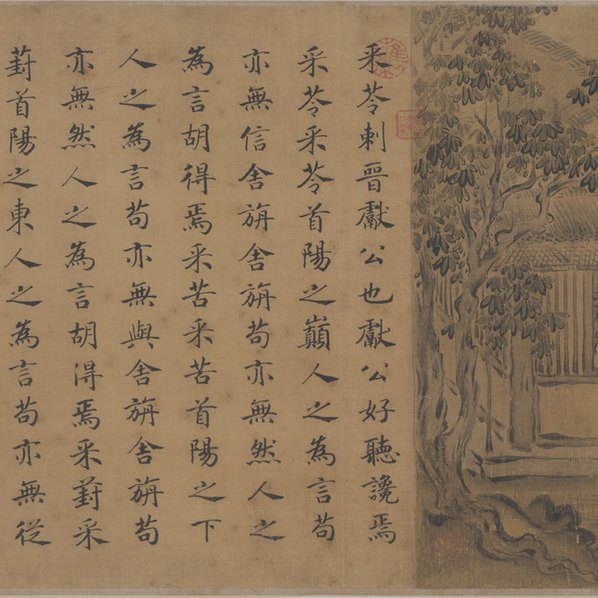 采苓刺晉獻公也獻公好聽讒焉
采苓采苓首陽之巔人之為言苟
亦無信舍旃舍旃苟亦無然人之
為言胡得焉采苦采苦首陽之下
人之為言苟亦無與舍旃舍旃苟
亦無然人之為言胡得焉采葑采
葑首陽之東人之為言苟亦無從